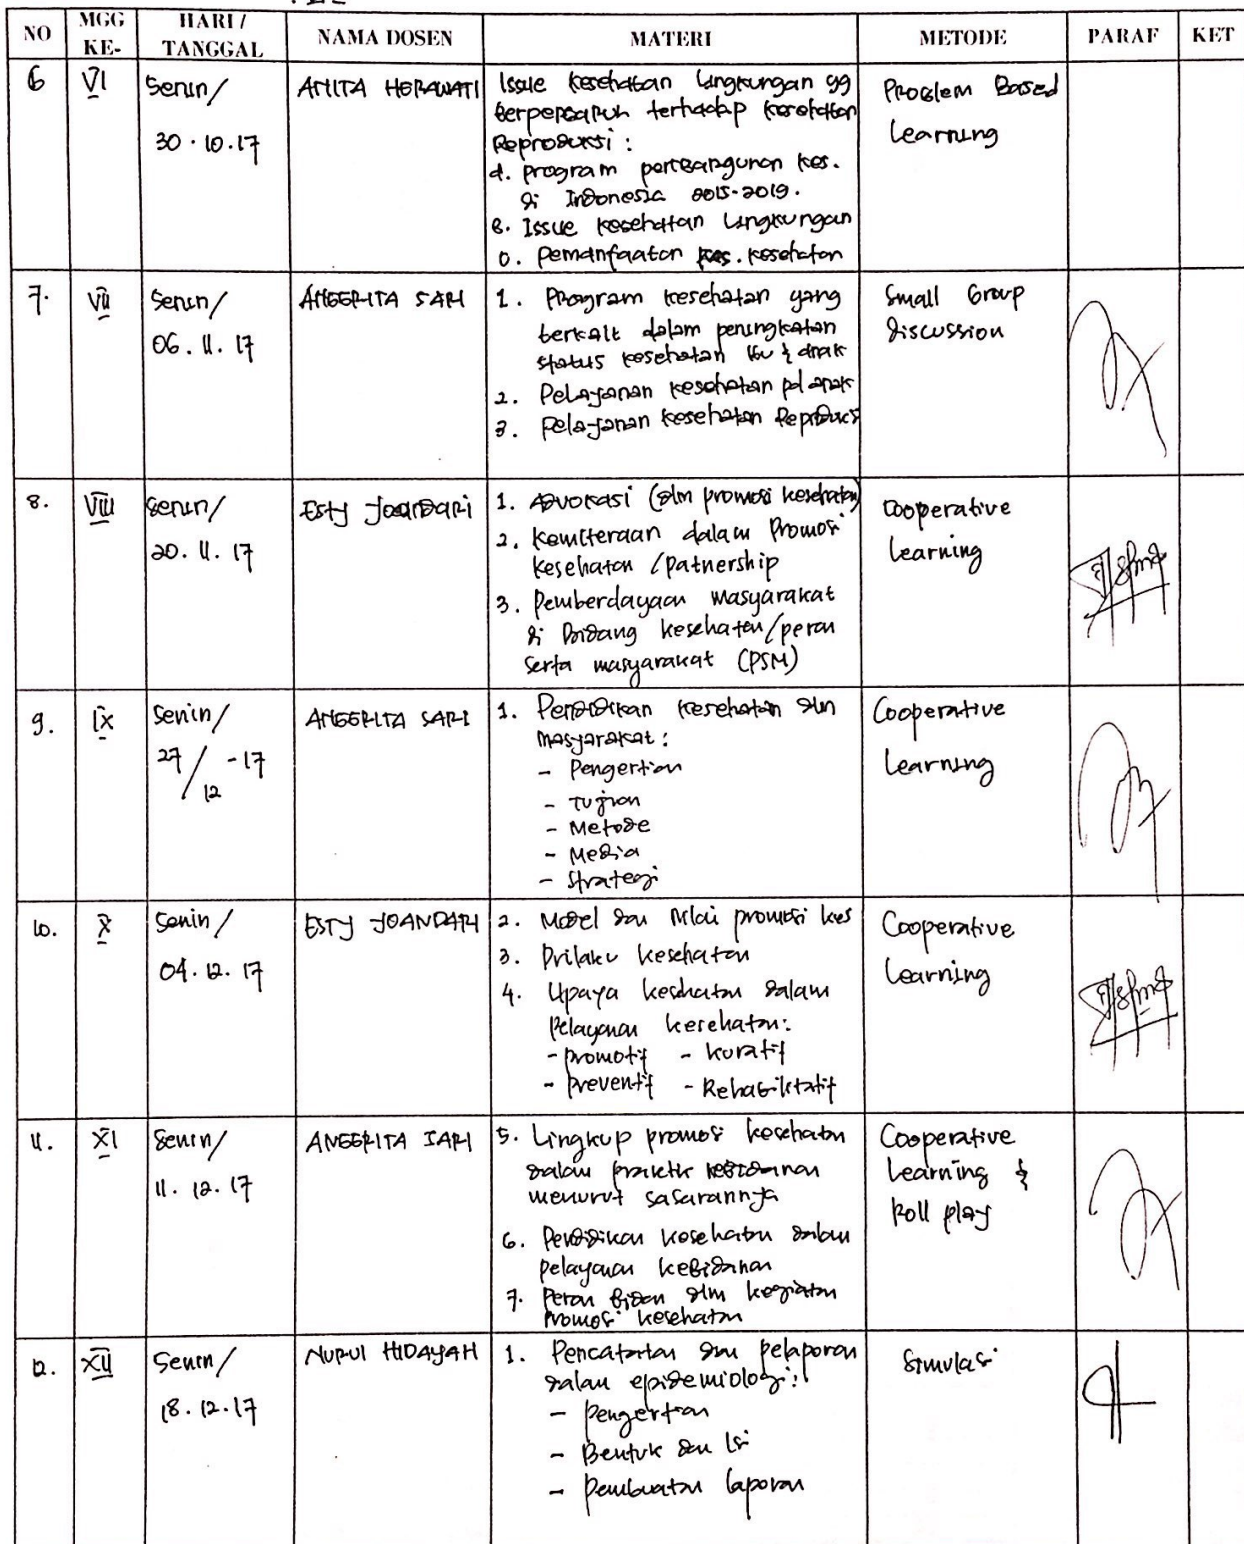 NO MGG KE- HARI / TANGGAL NAMA DOSEN MATERI METODE PARAF KET
6 VI Senin/ 30.10.17 ANITA HERAWATI
Issue kesehatan lingkungan yg
berpengaruh terhadap kesehatan
Reproduksi :
program pembangunan kes.
di Indonesia 2015-2019.
Issue kesehatan lingkungan
Pemanfaatan kesehatan
Problem Based
Learning
7. VII Senin/ 06.11.17 ANGGRITA SARI
1. Program kesehatan yang
terkait dalam peningkatan
status kesehatan ibu & anak
2. Pelayanan kesehatan pd anak
3. Pelayanan kesehatan Reproduksi
Small Group
Discussion
8. VIII Senin/ 20.11.17 ESTY JOANDARI
1. Advokasi (dlm promosi kesehatan)
2. Kemiteraan dalam Promosi
kesehatan /patnership
3. Pemberdayaan masyarakat
di bidang kesehatan/peran
serta masyarakat (PSM)
Cooperative
Learning
9. IX Senin/ 27/12-17 ANGGRITA SARI
1. Pendidikan kesehatan dlm
masyarakat :
- Pengertian
- Tujuan
- Metode
- Media
- Strategi
Cooperative
Learning
10. X Senin/ 04.12.17 ESTY JOANDARI
2. Model dan Nilai promosi kes
3. Prilaku kesehatan
4. Upaya kesehatan dalam
Pelayanan kesehatan:
- promotif - kuratif
- preventif - Rehabilitatif
Cooperative
Learning
11. XI Senin/ 11.12.17 ANGGRITA SARI
5. Lingkup promosi kesehatan
dalam praktik kebidanan
menurut sasarannya
6. Pendidikan kesehatan dalam
pelayanan kebidanan
7. Peran bidan dlm kegiatan
Promosi kesehatan
Cooperative
Learning &
Roll play
12. XII Senin/ 18.12.17 NURUL HIDAYAH
1. Pencatatan dan pelaporan
dalam epidemiologi:
- Pengertian
- Bentuk dan Isi
- Pembuatan laporan
Simulasi